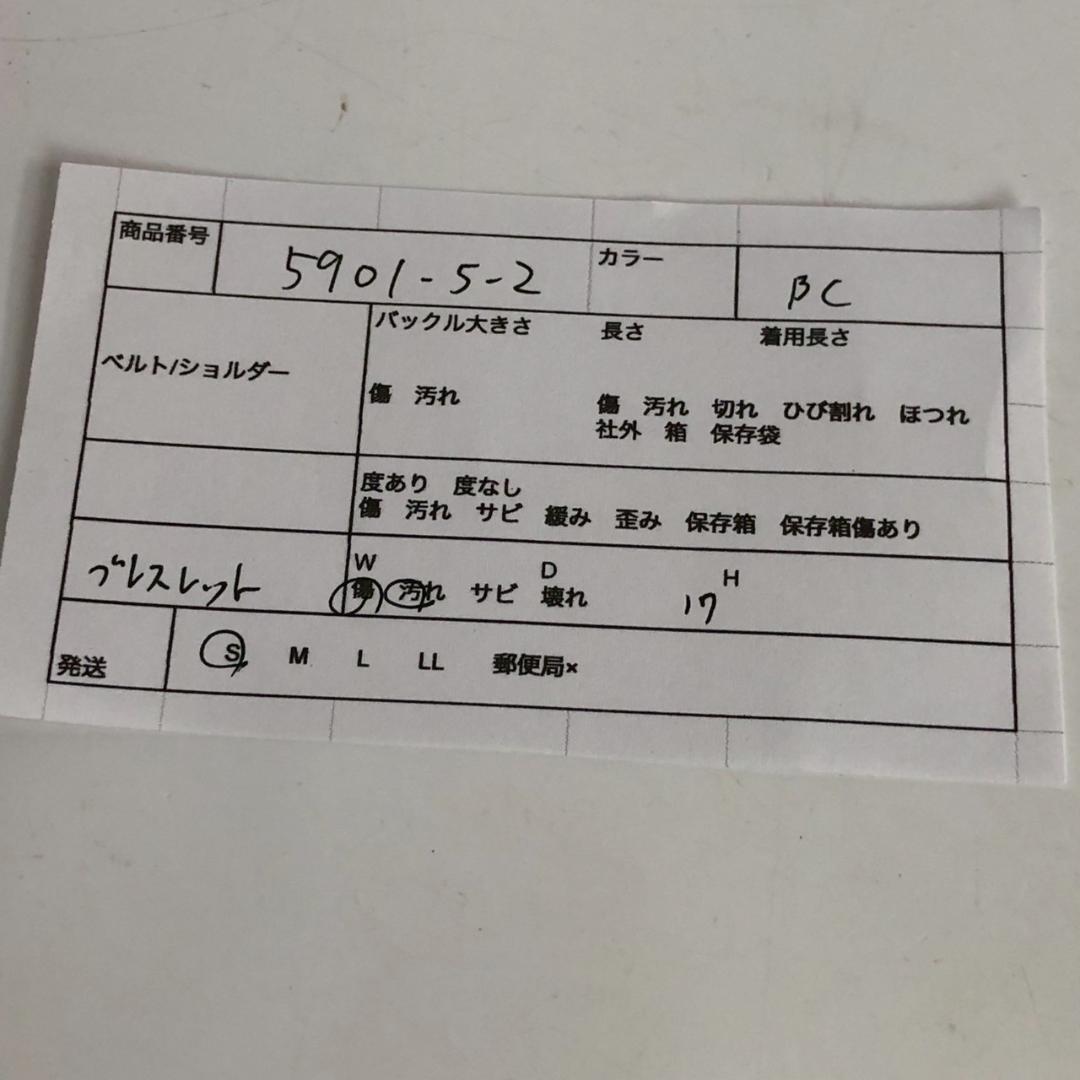 商品番号 5901-5-2 カラー BC
バックル大きさ 長さ 着用長さ
ベルト/ショルダー
傷 汚れ 傷 汚れ 切れ ひび割れ ほつれ
社外 箱 保存袋
度あり 度なし
傷 汚れ サビ 緩み 歪み 保存箱 保存箱傷あり
W D H
ブレスレット 傷 汚れ サビ 壊れ 17
発送 S M L LL 郵便局×